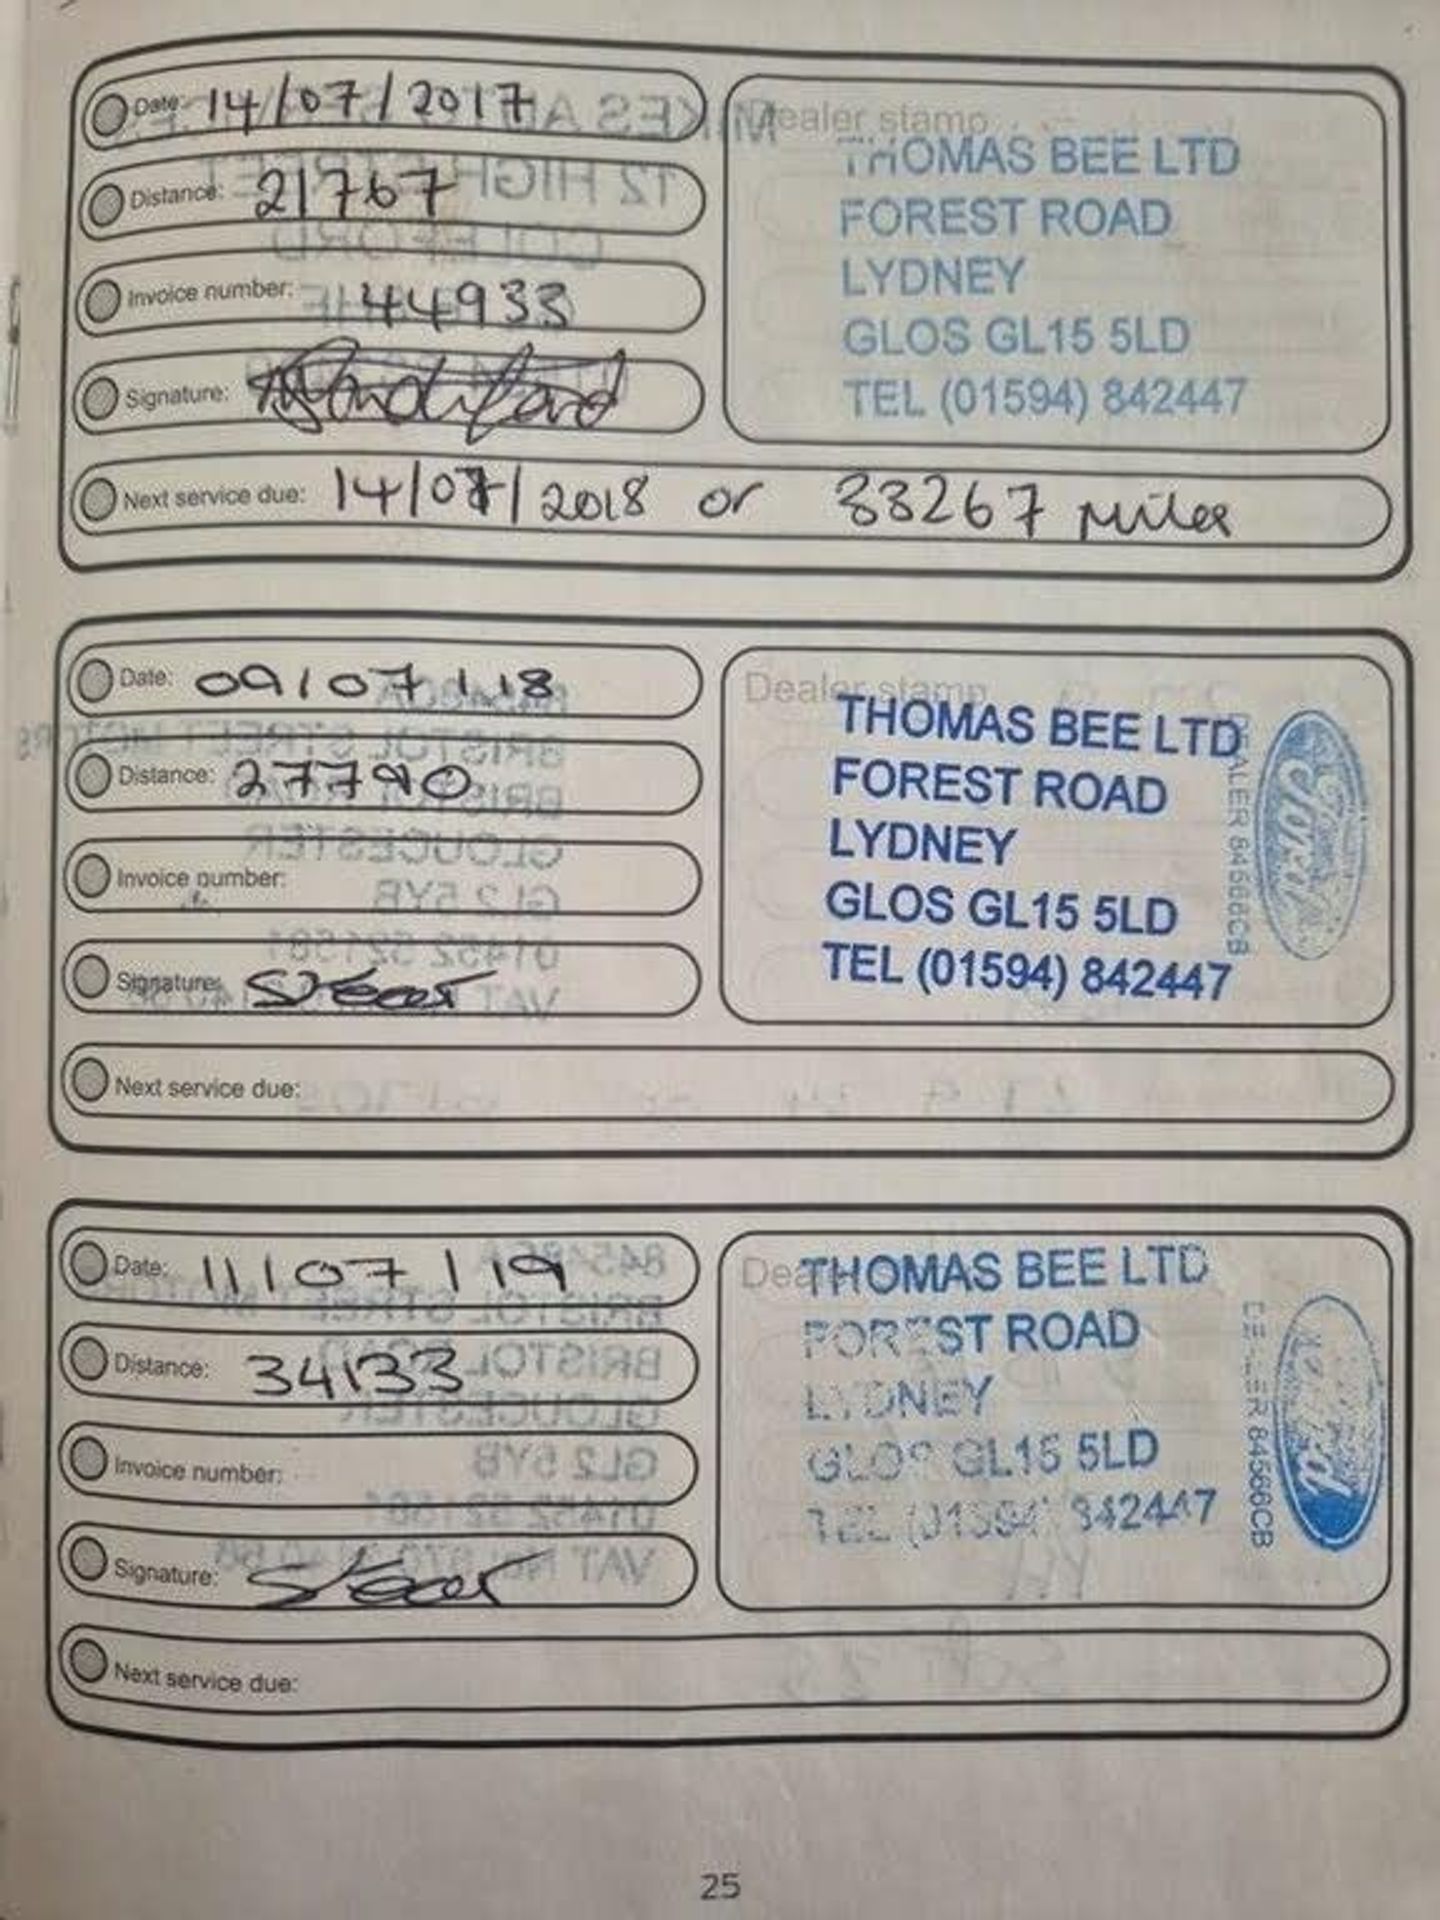 Date: 14/07/2017
Distance: 21767
Invoice number: 44933
Signature:
Next service due: 14/07/2018 or 33267 miles
Dealer stamp
THOMAS BEE LTD
FOREST ROAD
LYDNEY
GLOS GL15 5LD
TEL (01594) 842447
Date: 09/07/18
Distance: 27790
Invoice number:
Signature:
Next service due:
Dealer stamp
THOMAS BEE LTD
FOREST ROAD
LYDNEY
GLOS GL15 5LD
TEL (01594) 842447
DEALER 84566CB
Ford
Date: 11/07/19
Distance: 34133
Invoice number:
Signature:
Next service due:
THOMAS BEE LTD
FOREST ROAD
LYDNEY
GLOS GL15 5LD
TEL (01594) 842447
DEALER 84566CB
Ford
25